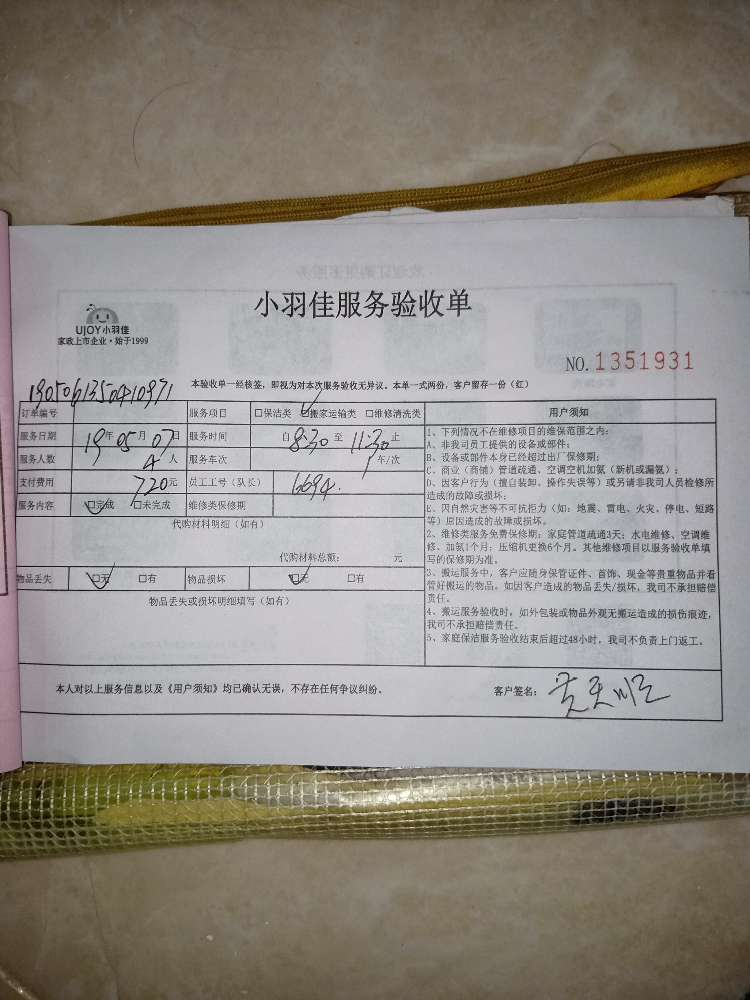 小羽佳服务验收单
UJOY小羽佳
家政上市企业·始于1999
NO.1351931
190506135040971
本验收单一经核签，即视为对本次服务验收无异议。本单一式两份，客户留存一份（红）
订单编号 服务项目 □保洁类 ☑搬家运输类 □维修清洗类
服务日期 19年05月07日 服务时间 自8:30至11:30止
服务人数 4人 服务车次 1车/次
支付费用 720元 员工工号（队长） 6694.
服务内容 ☑完成 □未完成 维修类保修期
代购材料明细（如有）
代购材料总额： 元
物品丢失 ☑无 □有 物品损坏 ☑无 □有
物品丢失或损坏明细填写（如有）
用户须知
1、下列情况不在维修项目的维保范围之内：
A、非我司员工提供的设备或部件；
B、设备或部件本身已经超过出厂保修期；
C、商业（商铺）管道疏通、空调空机加氨（新机或漏氨）；
D、因客户行为（擅自装卸、操作失误等）或另请非我司人员检修所
造成的故障或损坏；
E、因自然灾害等不可抗拒力（如：地震、雷电、火灾、停电、短路
等）原因造成的故障或损坏。
2、维修类服务免费保修期：家庭管道疏通3天；水电维修、空调维
修、加氨1个月；压缩机更换6个月。其他维修项目以服务验收单填
写的保修期为准。
3、搬运服务中，客户应随身保管证件、首饰、现金等贵重物品并看
管好搬运的物品。如因客户造成的物品丢失/损坏，我司不承担赔偿
责任。
4、搬运服务验收时，如外包装或物品外观无搬运造成的损伤痕迹，
我司不承担赔偿责任。
5、家庭保洁服务验收结束后超过48小时，我司不负责上门返工。
本人对以上服务信息以及《用户须知》均已确认无误，不存在任何争议纠纷。 客户签名：